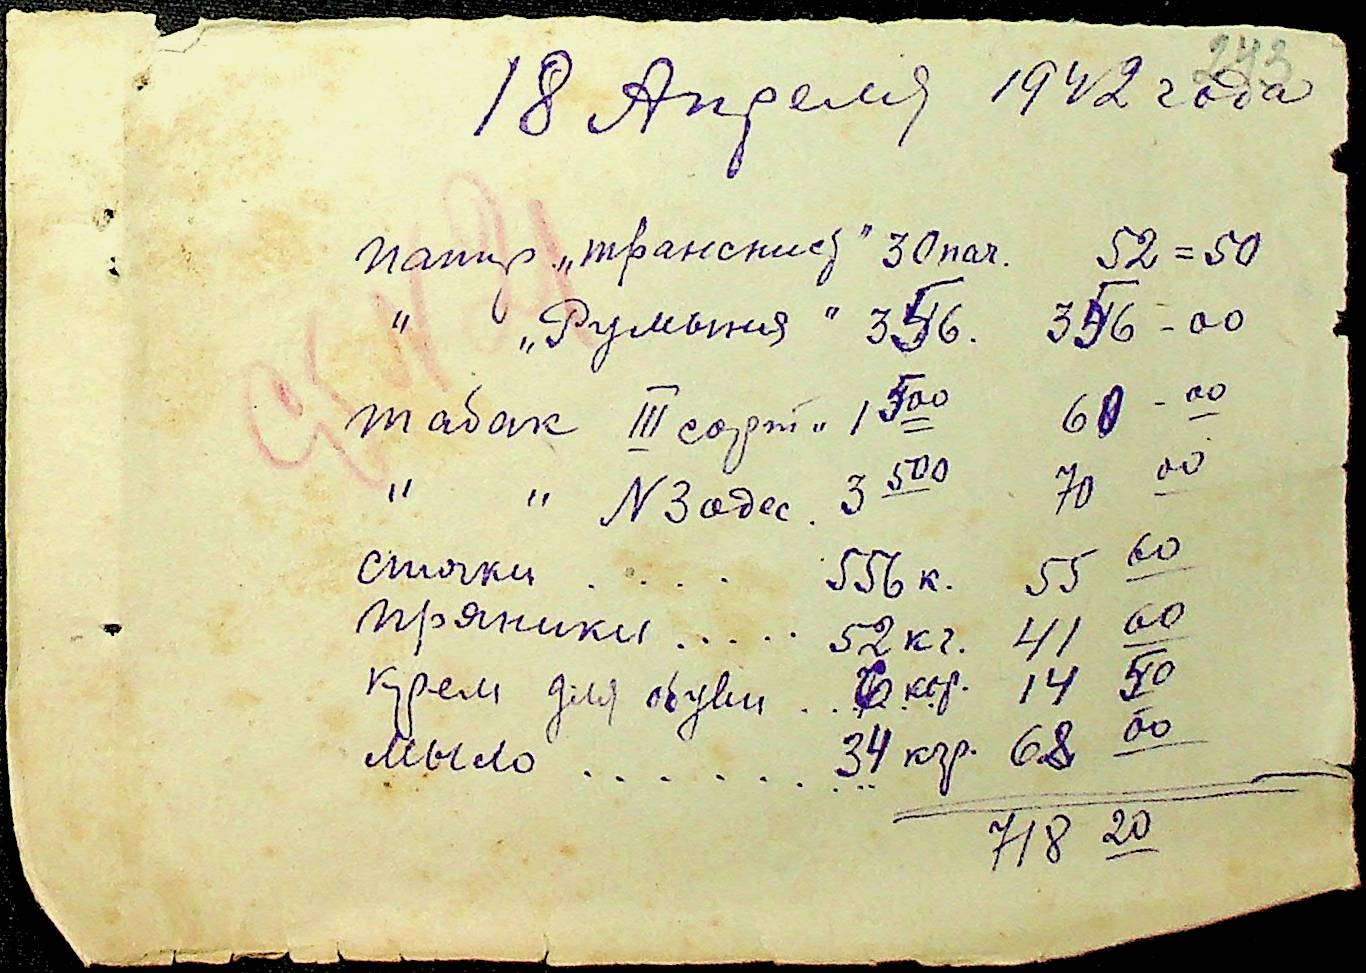 243
18 Апреля 1942 года
папир „транснист" 30 пач. 52 = 50
" „Румыния" 356. 356 - 00
табак III сорт „ 1 500 60 - 00
" " N 3 одес. 3 500 70 00
спички . . . . 556 к. 55 60
пряники . . . . 52 кг. 41 60
крем для обуви . . 6 кор. 14 50
мыло . . . . . . . 34 кгр. 68 00
718 20